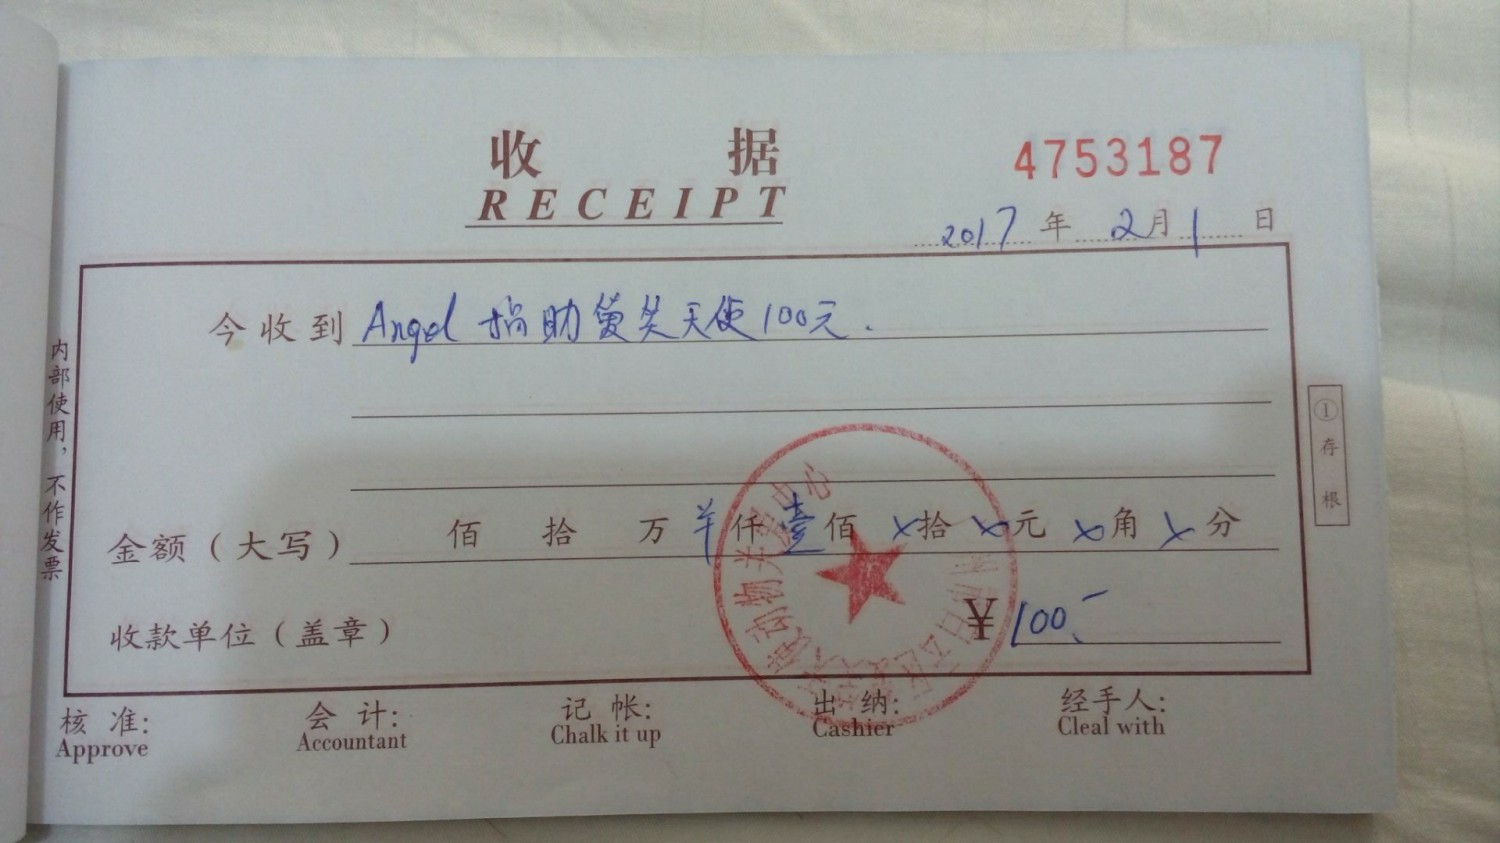 收 据
RECEIPT
4753187
2017 年 2 月 1 日
今收到 Angel 捐助爱笑天使100元.
金额（大写） 佰 拾 万 羊 仟 壹 佰 x 拾 x 元 x 角 x 分
收款单位（盖章） ¥ 100.-
核 准: 会 计: 记 帐: 出 纳: 经手人:
Approve Accountant Chalk it up Cashier Cleal with
内部使用，不作发票
① 存 根
使动物关爱中心